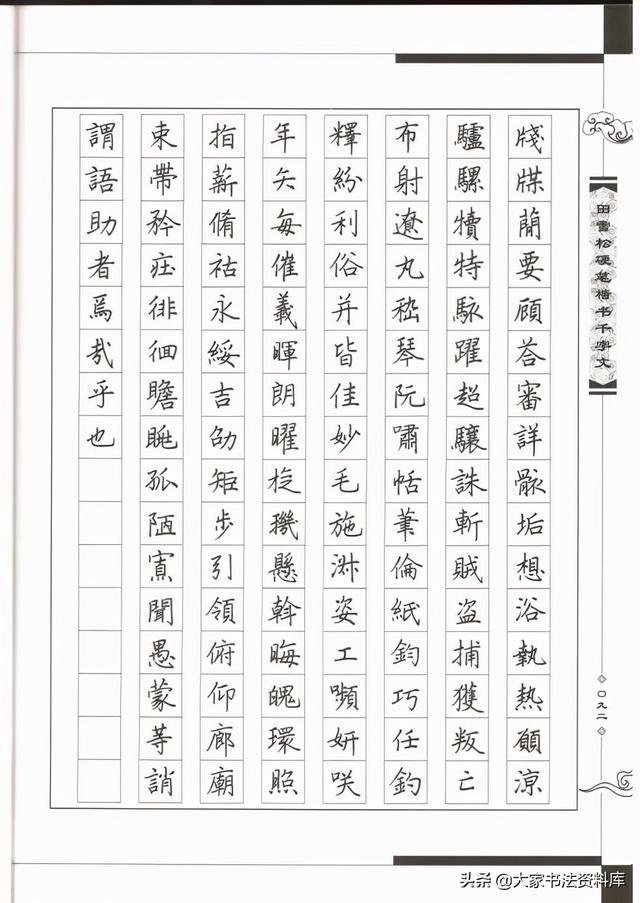 牋牒蕳要顧荅審詳骸垢想浴執熱願涼
驢騾犢特駭躍超驤誅斬賊盗捕獲叛亡
布射遼丸嵇琴阮嘯恬筆倫紙鈞巧任釣
釋紛利俗并皆佳妙毛施淑姿工嚬妍咲
年矢每催羲暉朗曜旋璣懸斡晦魄環照
指薪脩祜永綏吉劭矩步引領俯仰廊廟
束帶矜莊徘徊瞻眺孤陋寡聞愚蒙等誚
謂語助者焉哉乎也
田雪松硬笔楷书千字文
〇九二
头条 @大家书法资料库